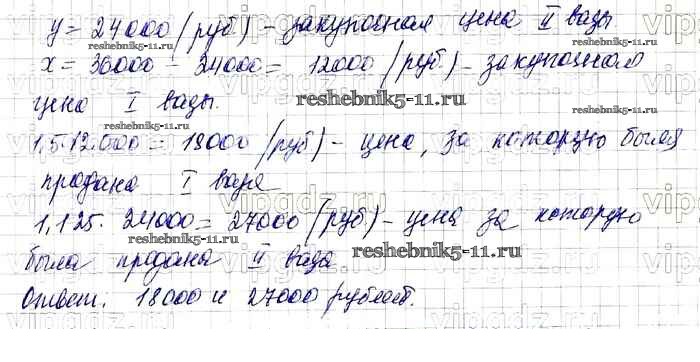 y = 24000 (руб) - закупочная цена II вазы
reshebnik5-11.ru
x = 36000 - 24000 = 12000 (руб) - закупочная
цена I вазы.
reshebnik5-11.ru
reshebnik5-11.ru
1,5·12000 = 18000 (руб) - цена, за которую была
продана I ваза
1,125·24000 = 27000 (руб) - цена за которую
reshebnik5-11.ru
reshebnik5-11.ru
была продана II ваза
Ответ. 18000 и 27000 рублей.